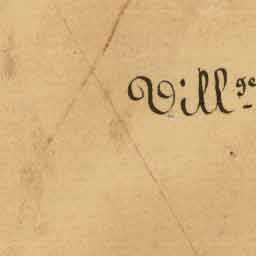 Vill ge